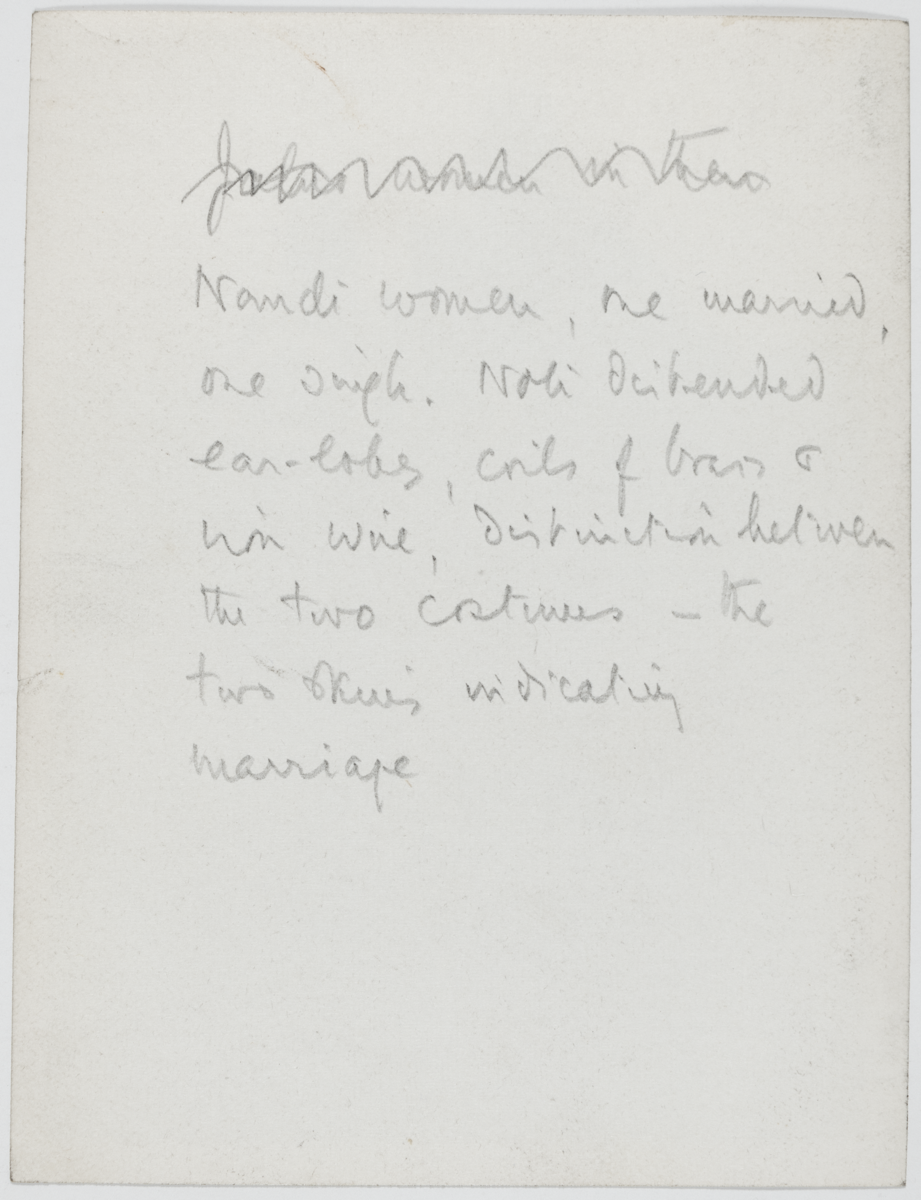 women in their
Nandi women, one married,
one single. Note distended
ear-lobes, coils of brass &
iron wire, Distinction between
the two costumes – the
two skins indicating
marriage